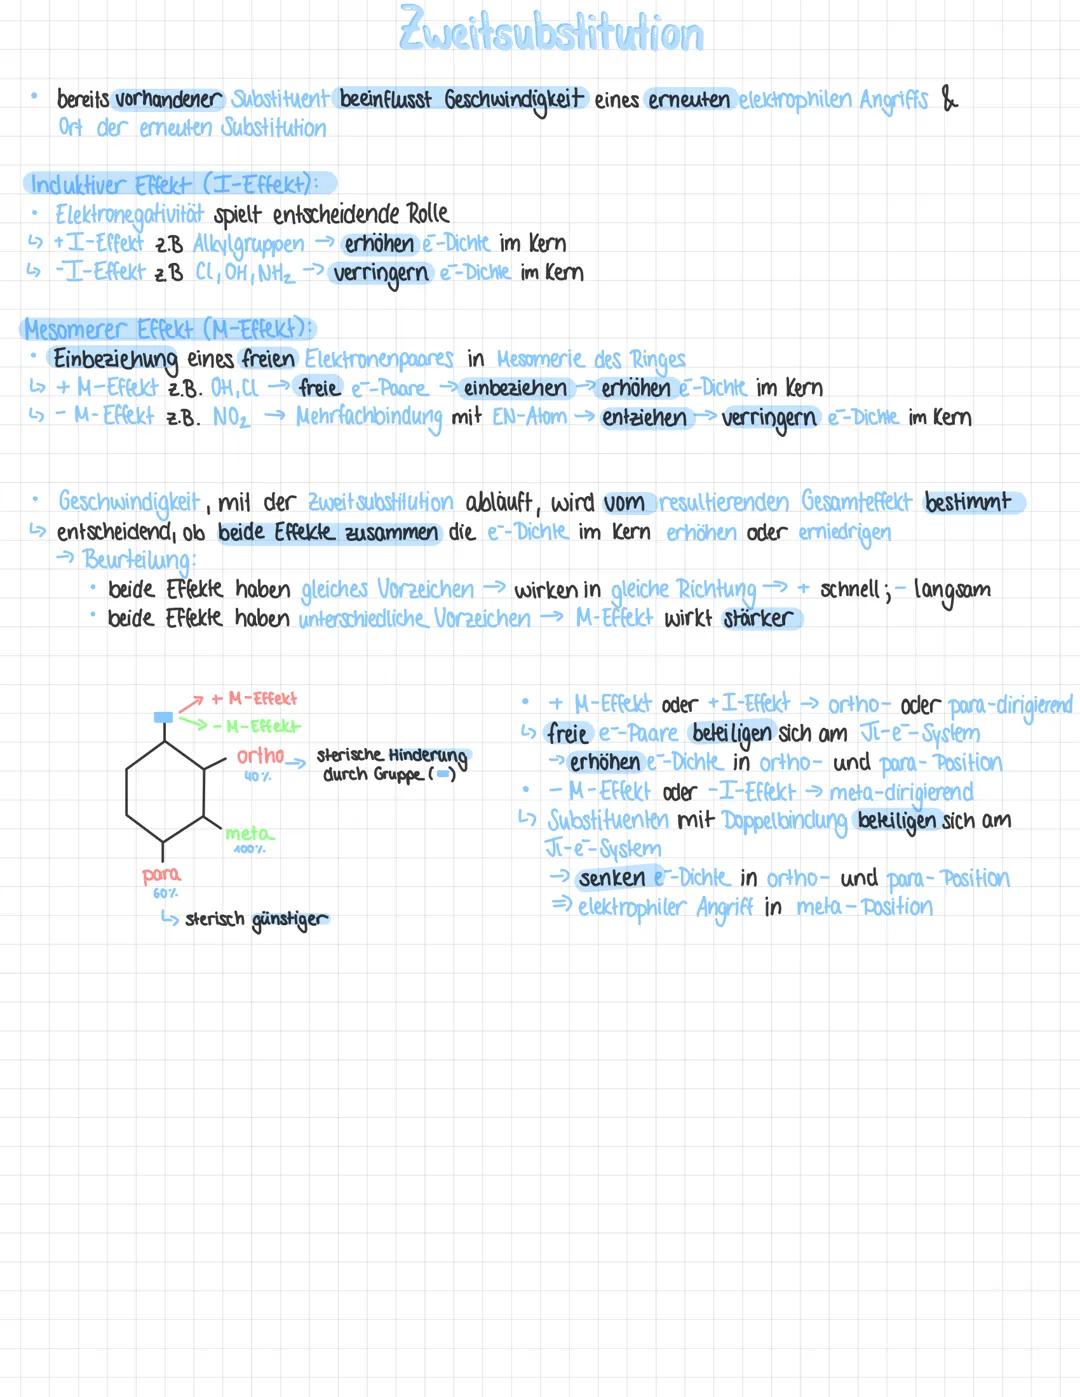 Zweitsubstitution
• bereits vorhandener Substituent beeinflusst Geschwindigkeit eines erneuten elektrophilen Angriffs &
Ort der erneuten Substitution
Induktiver Effekt (I-Effekt):
• Elektronegativität spielt entscheidende Rolle
↳ +I-Effekt z.B Alkylgruppen → erhöhen e⁻-Dichte im Kern
↳ -I-Effekt z.B Cl, OH, NH₂ → verringern e⁻-Dichte im Kern
Mesomerer Effekt (M-Effekt):
• Einbeziehung eines freien Elektronenpaares in Mesomerie des Ringes
↳ + M-Effekt z.B. OH, Cl → freie e⁻-Paare → einbeziehen → erhöhen e⁻-Dichte im Kern
↳ - M-Effekt z.B. NO₂ → Mehrfachbindung mit EN-Atom → entziehen → verringern e⁻-Dichte im Kern
• Geschwindigkeit, mit der Zweitsubstitution abläuft, wird vom resultierenden Gesamteffekt bestimmt
↳ entscheidend, ob beide Effekte zusammen die e⁻-Dichte im Kern erhöhen oder erniedrigen
→ Beurteilung:
• beide Effekte haben gleiches Vorzeichen → wirken in gleiche Richtung → + schnell ; - langsam
• beide Effekte haben unterschiedliche Vorzeichen → M-Effekt wirkt stärker
→ + M-Effekt
→ - M-Effekt
ortho → sterische Hinderung
40% durch Gruppe ( )
meta
100%
para
60%
↳ sterisch günstiger
• + M-Effekt oder +I-Effekt → ortho- oder para-dirigierend
↳ freie e⁻-Paare beteiligen sich am π-e⁻-System
→ erhöhen e⁻-Dichte in ortho- und para-Position
• - M-Effekt oder -I-Effekt → meta-dirigierend
↳ Substituenten mit Doppelbindung beteiligen sich am
π-e⁻-System
→ senken e⁻-Dichte in ortho- und para-Position
⇒ elektrophiler Angriff in meta-Position